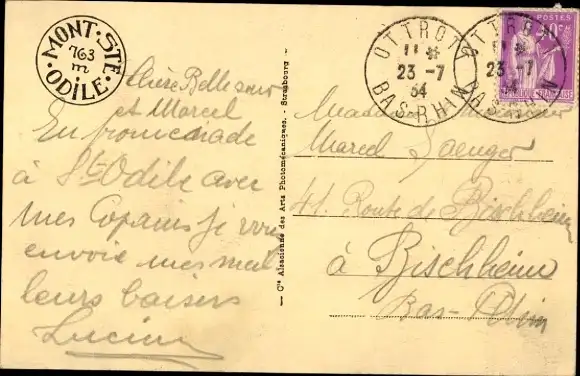 MONT-STE
763
m
ODILE
Chère Belle sœur
et Marcel
En promenade
à Ste Odile avec
mes Copains je vous
envoie mes meil
leurs baisers
Lucien
— Cie Alsacienne des Arts Photomécaniques. - Strasbourg —
OTTROTT
11 *
23 -7
34
BAS-RHIN
OTTROTT
11 *
23 -7
34
BAS-RHIN
POSTES
REPUBLIQUE FRANÇAISE
Marcel Saenger
41. Route de Bischheim
à Bischheim
Bas-Rhin